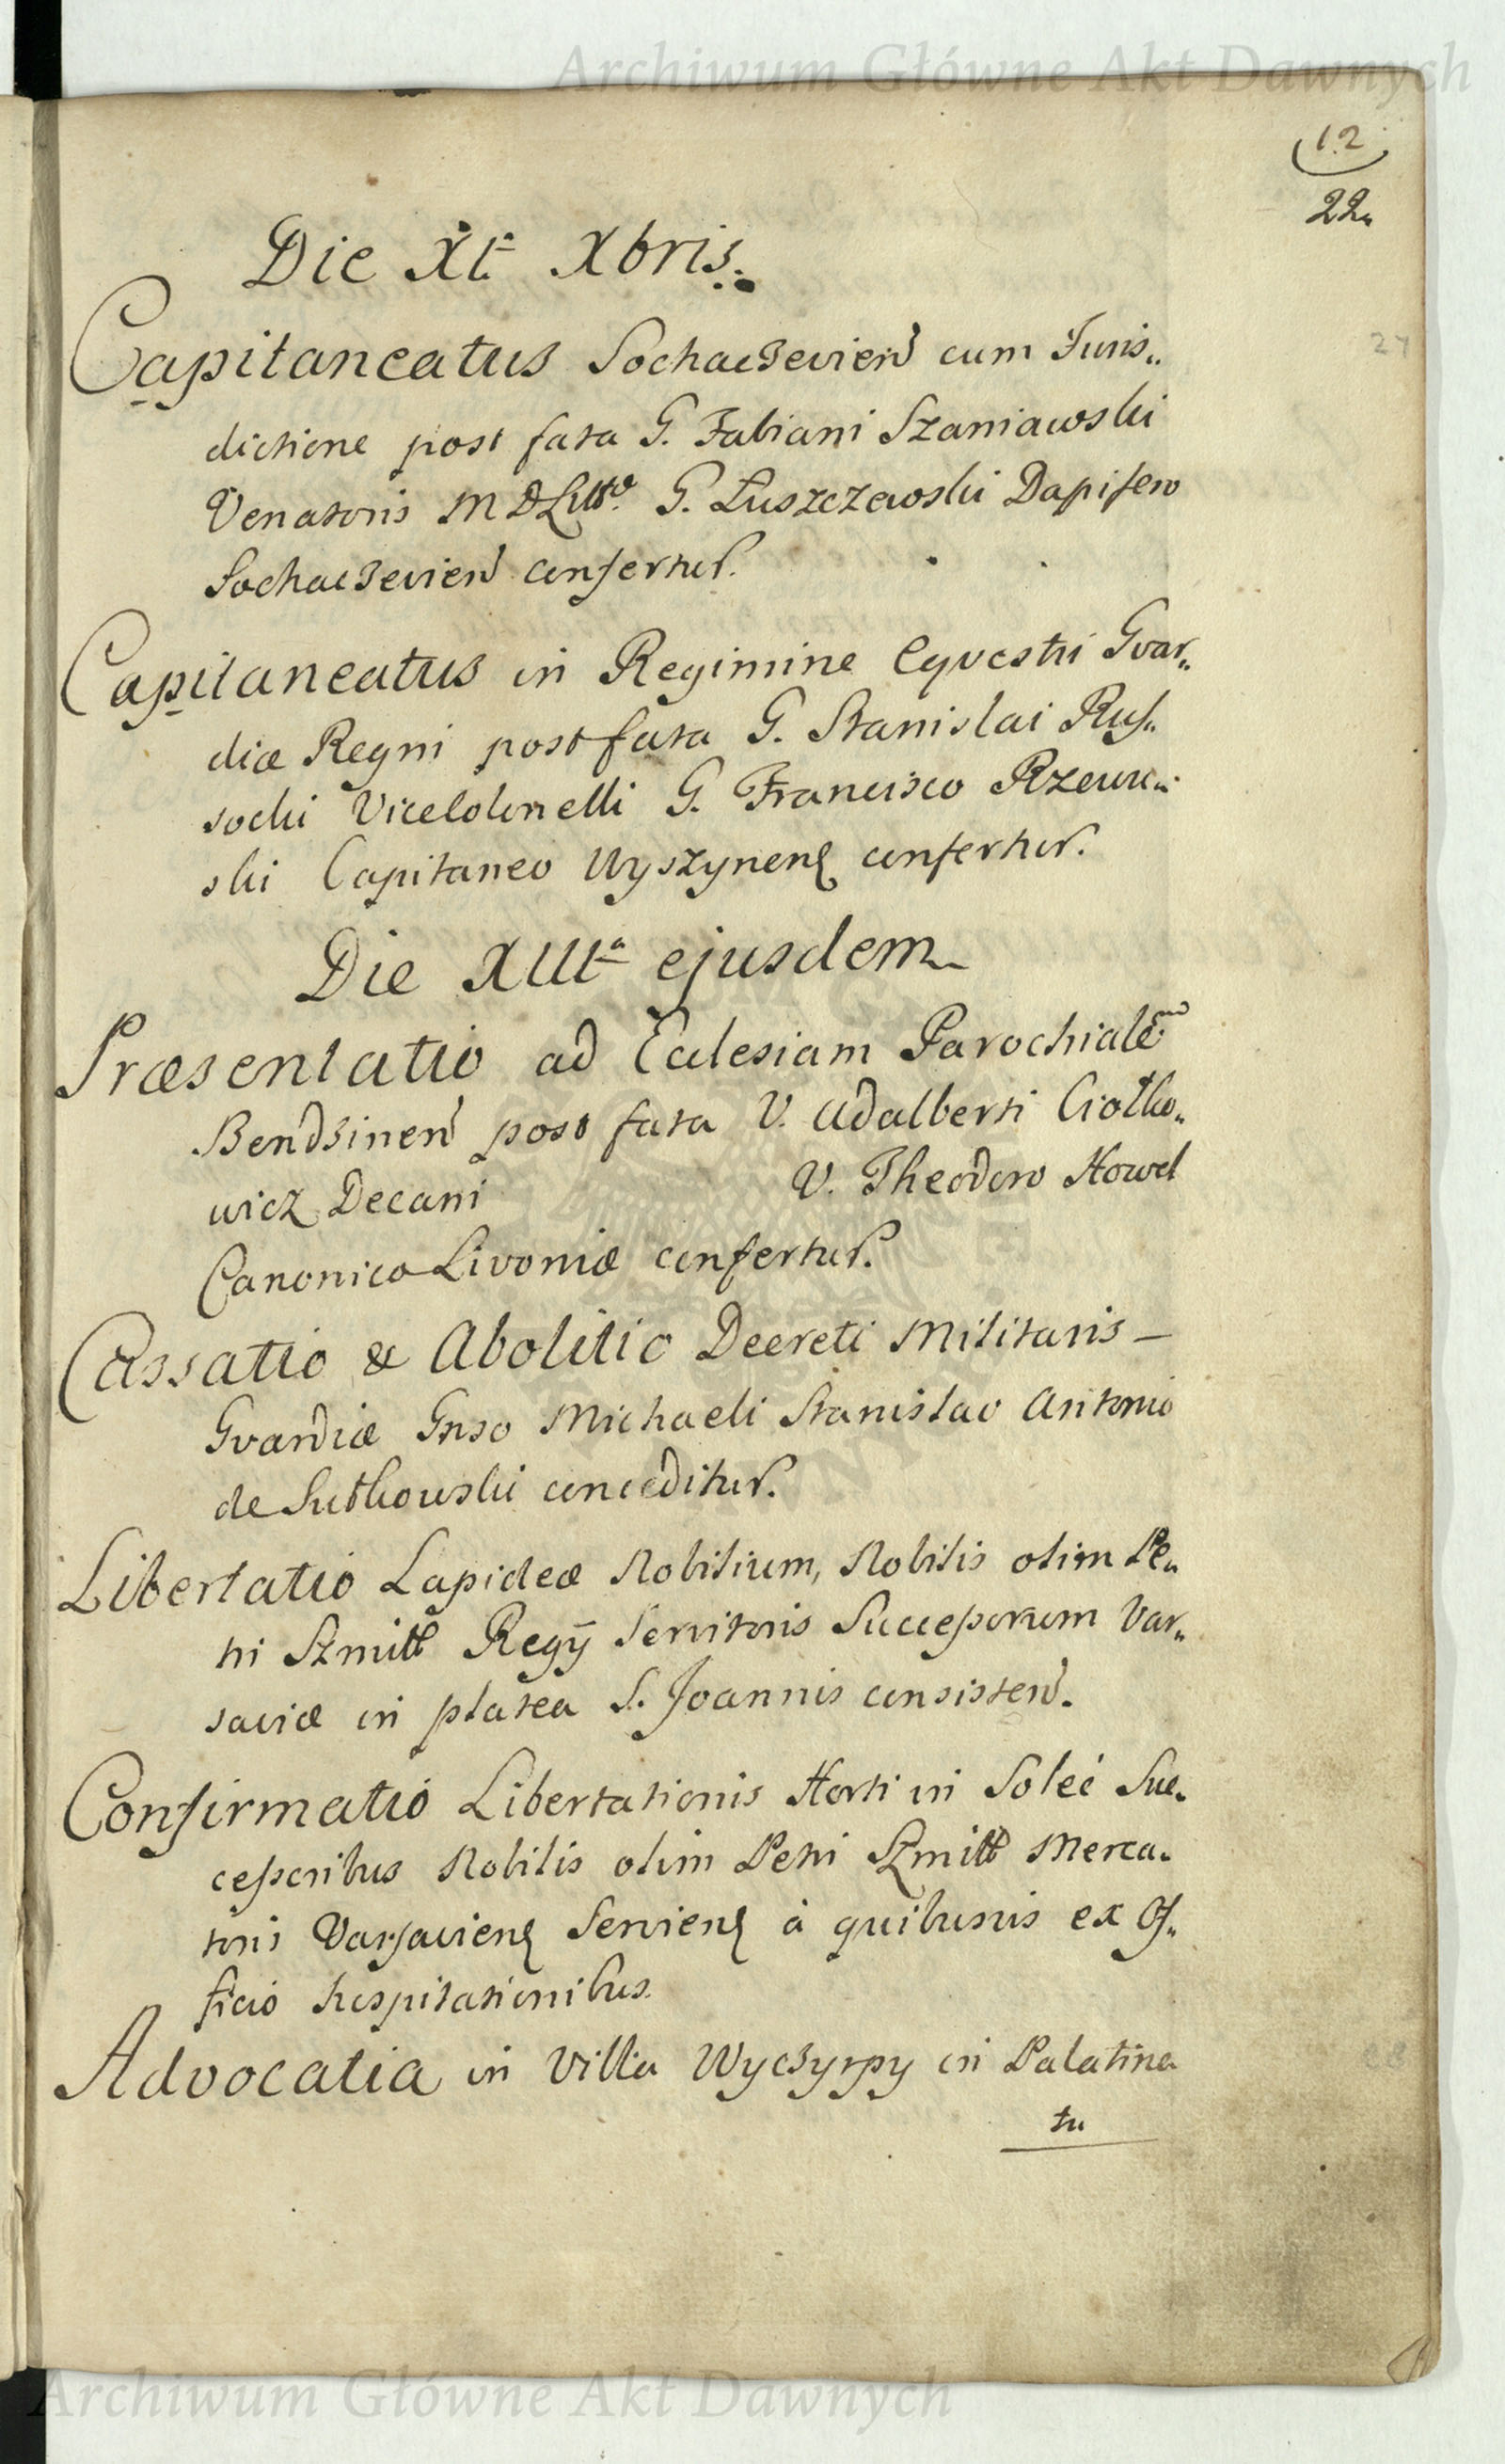 Archiwum Główne Akt Dawnych
12
22
Die XIa Xbris.
Capitaneatus Sochaczevien cum Juris„
dictione post fata G. Fabiani Szaniawski
Venatoris M D Litt. G. Łuszczewski Dapifero
Sochaczevien confertur.
Capitaneatus in Regimine Eqvestri Gvar„
diæ Regni post fata G. Stanislai Rus„
socki Vicelolonelli G. Francisco Rzewu„
ski Capitaneo Wyszynens confertur.
Die XIIIa ejusdem
Præsentatio ad Ecclesiam Parochialem
Bendzinen post fata V. Adalberti Ciołko„
wicz Decani V. Theodoro Howel
Canonico Livoniæ confertur.
Cassatio & Abolitio Decreti Militaris –
Gvardiæ Gnso Michaeli Stanislao Antonio
de Sutkowski conceditur.
Libertatio Lapideæ Nobilium, Nobilis olim Pe„
tri Szmitt Regÿ Servitoris Successorum Var„
saviæ in platea S. Joannis consisten.
Confirmatio Libertationis Horti in Solec Suc„
cessoribus Nobilis olim Petri Szmitt Merca„
toris Varsaviens Serviens à quibusvis ex Of„
ficio hospitationibus.
Advocatia in Villa Wyczyrpy in Palatina
tu
Archiwum Główne Akt Dawnych